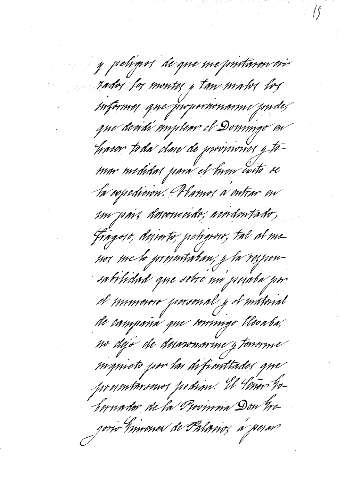 15
y peligros de que me pintaron eri-
zados los montes y tan malos los
informes que proporcionarme pude,
que decidí emplear el Domingo en
hacer toda clase de provisiones y to-
mar medidas para el buen éxito de
la expedición. Ibamos á entrar en
un país desconocido, accidentado,
fragoso, desierto, peligroso, tal al me-
nos me lo presentaban, y la respon-
sabilidad que sobre mí pesaba por
el numeroso personal y el material
de campaña que conmigo llevaba,
no dejó de desazonarme y tenerme
inquieto por las dificultades que
presentársenos podían. El Señor Go-
bernador de la Provincia Don Gre-
gorio de á pesar